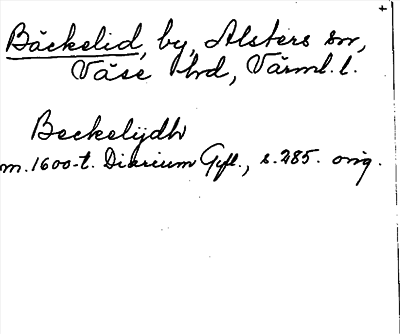 Bäckelid, by, Alsters sn,
Väse hd, Värml. l.
Beckelijdh
m. 1600-t. Diarium Gyll., s. 285. orig.